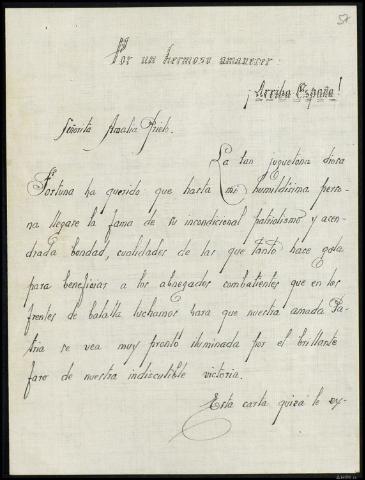 Por un hermoso amanecer.
¡Arriba España!
Señorita Amalia
La tan juguetona diosa
Fortuna ha querido que hasta mi humildísima perso-
na llegase la fama de su incondicional patriotismo y acen-
drada bondad, cualidades de las que tanto hace gala
para beneficiar a los abnegados combatientes que en los
frentes de batalla luchamos para que nuestra amada Pa-
tria se vea muy pronto iluminada por el brillante
faro de nuestra indiscutible victoria.
Esta carta quizá le ex-